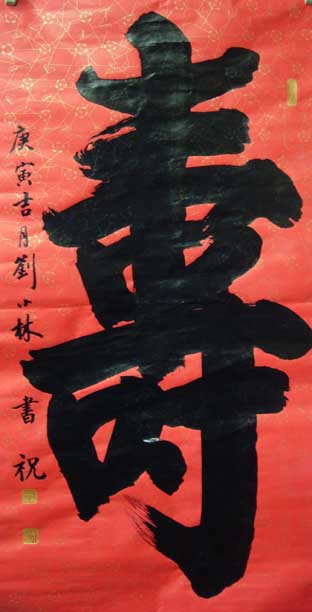 壽
庚寅吉月劉小林書祝